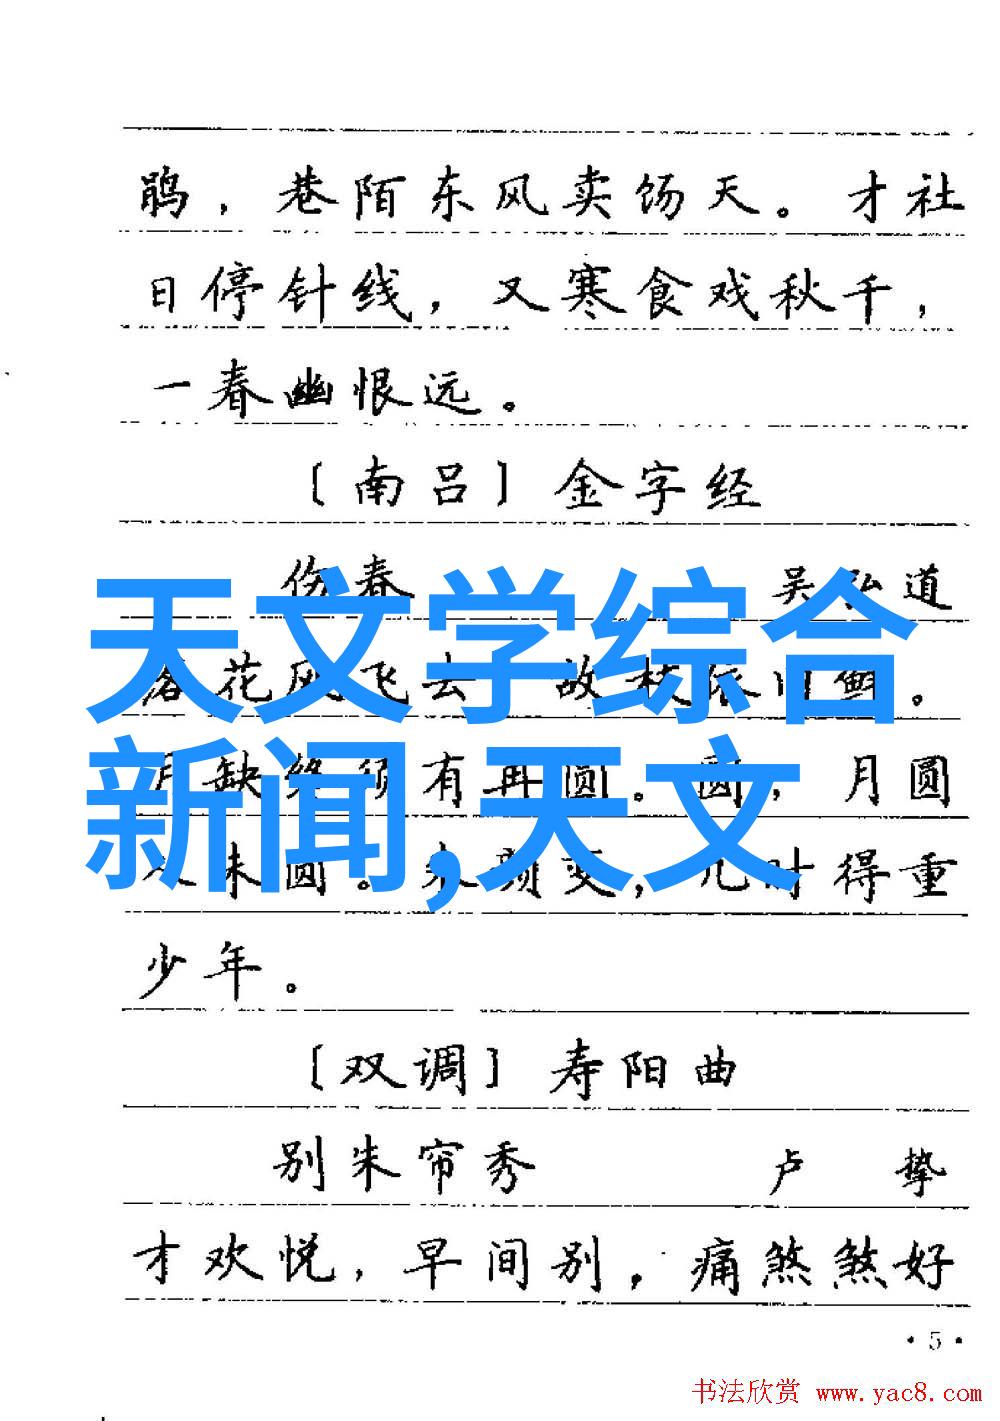 鹃，巷陌东风卖饧天。才社
日停针线，又寒食戏秋千，
一春幽恨远。
〔南吕〕金字经
伤春 吴弘道
落花风飞去，故枝依旧鲜。
月缺终须有再圆。圆，月圆
人未圆。朱颜变，几时得重
少年。
〔双调〕寿阳曲
别朱帘秀 卢挚
才欢悦，早间别，痛煞煞好
·5·
天文学综合
新闻,天文
书法欣赏 www.yac8.com